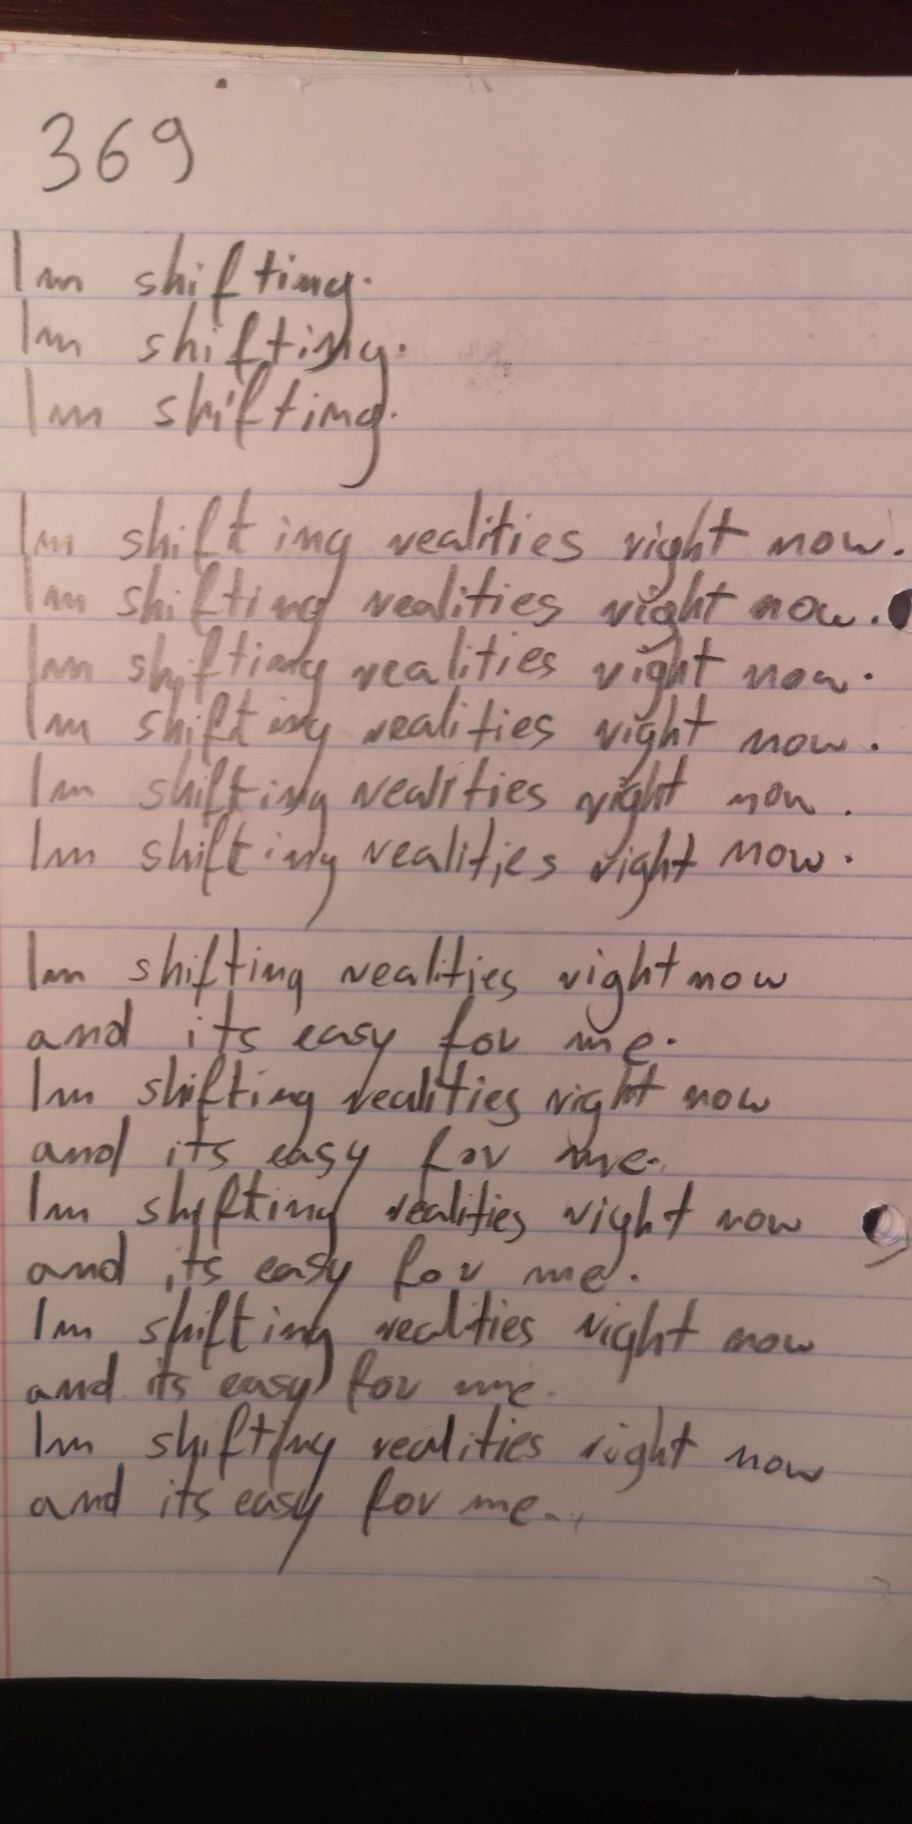 369
Im shifting.
Im shifting.
Im shifting.
Im shifting realities right now.
Im shifting realities right now.
Im shifting realities right now.
Im shifting realities right now.
Im shifting realities right now.
Im shifting realities right now.
Im shifting realities right now
and its easy for me.
Im shifting realities right now
and its easy for me.
Im shifting realities right now
and its easy for me.
Im shifting realities right now
and its easy for me.
Im shifting realities right now
and its easy for me.